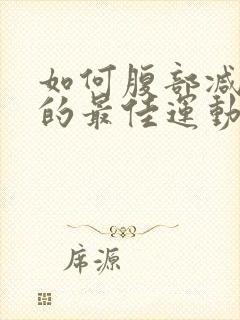 如何腹部减
的最佳運動
席源